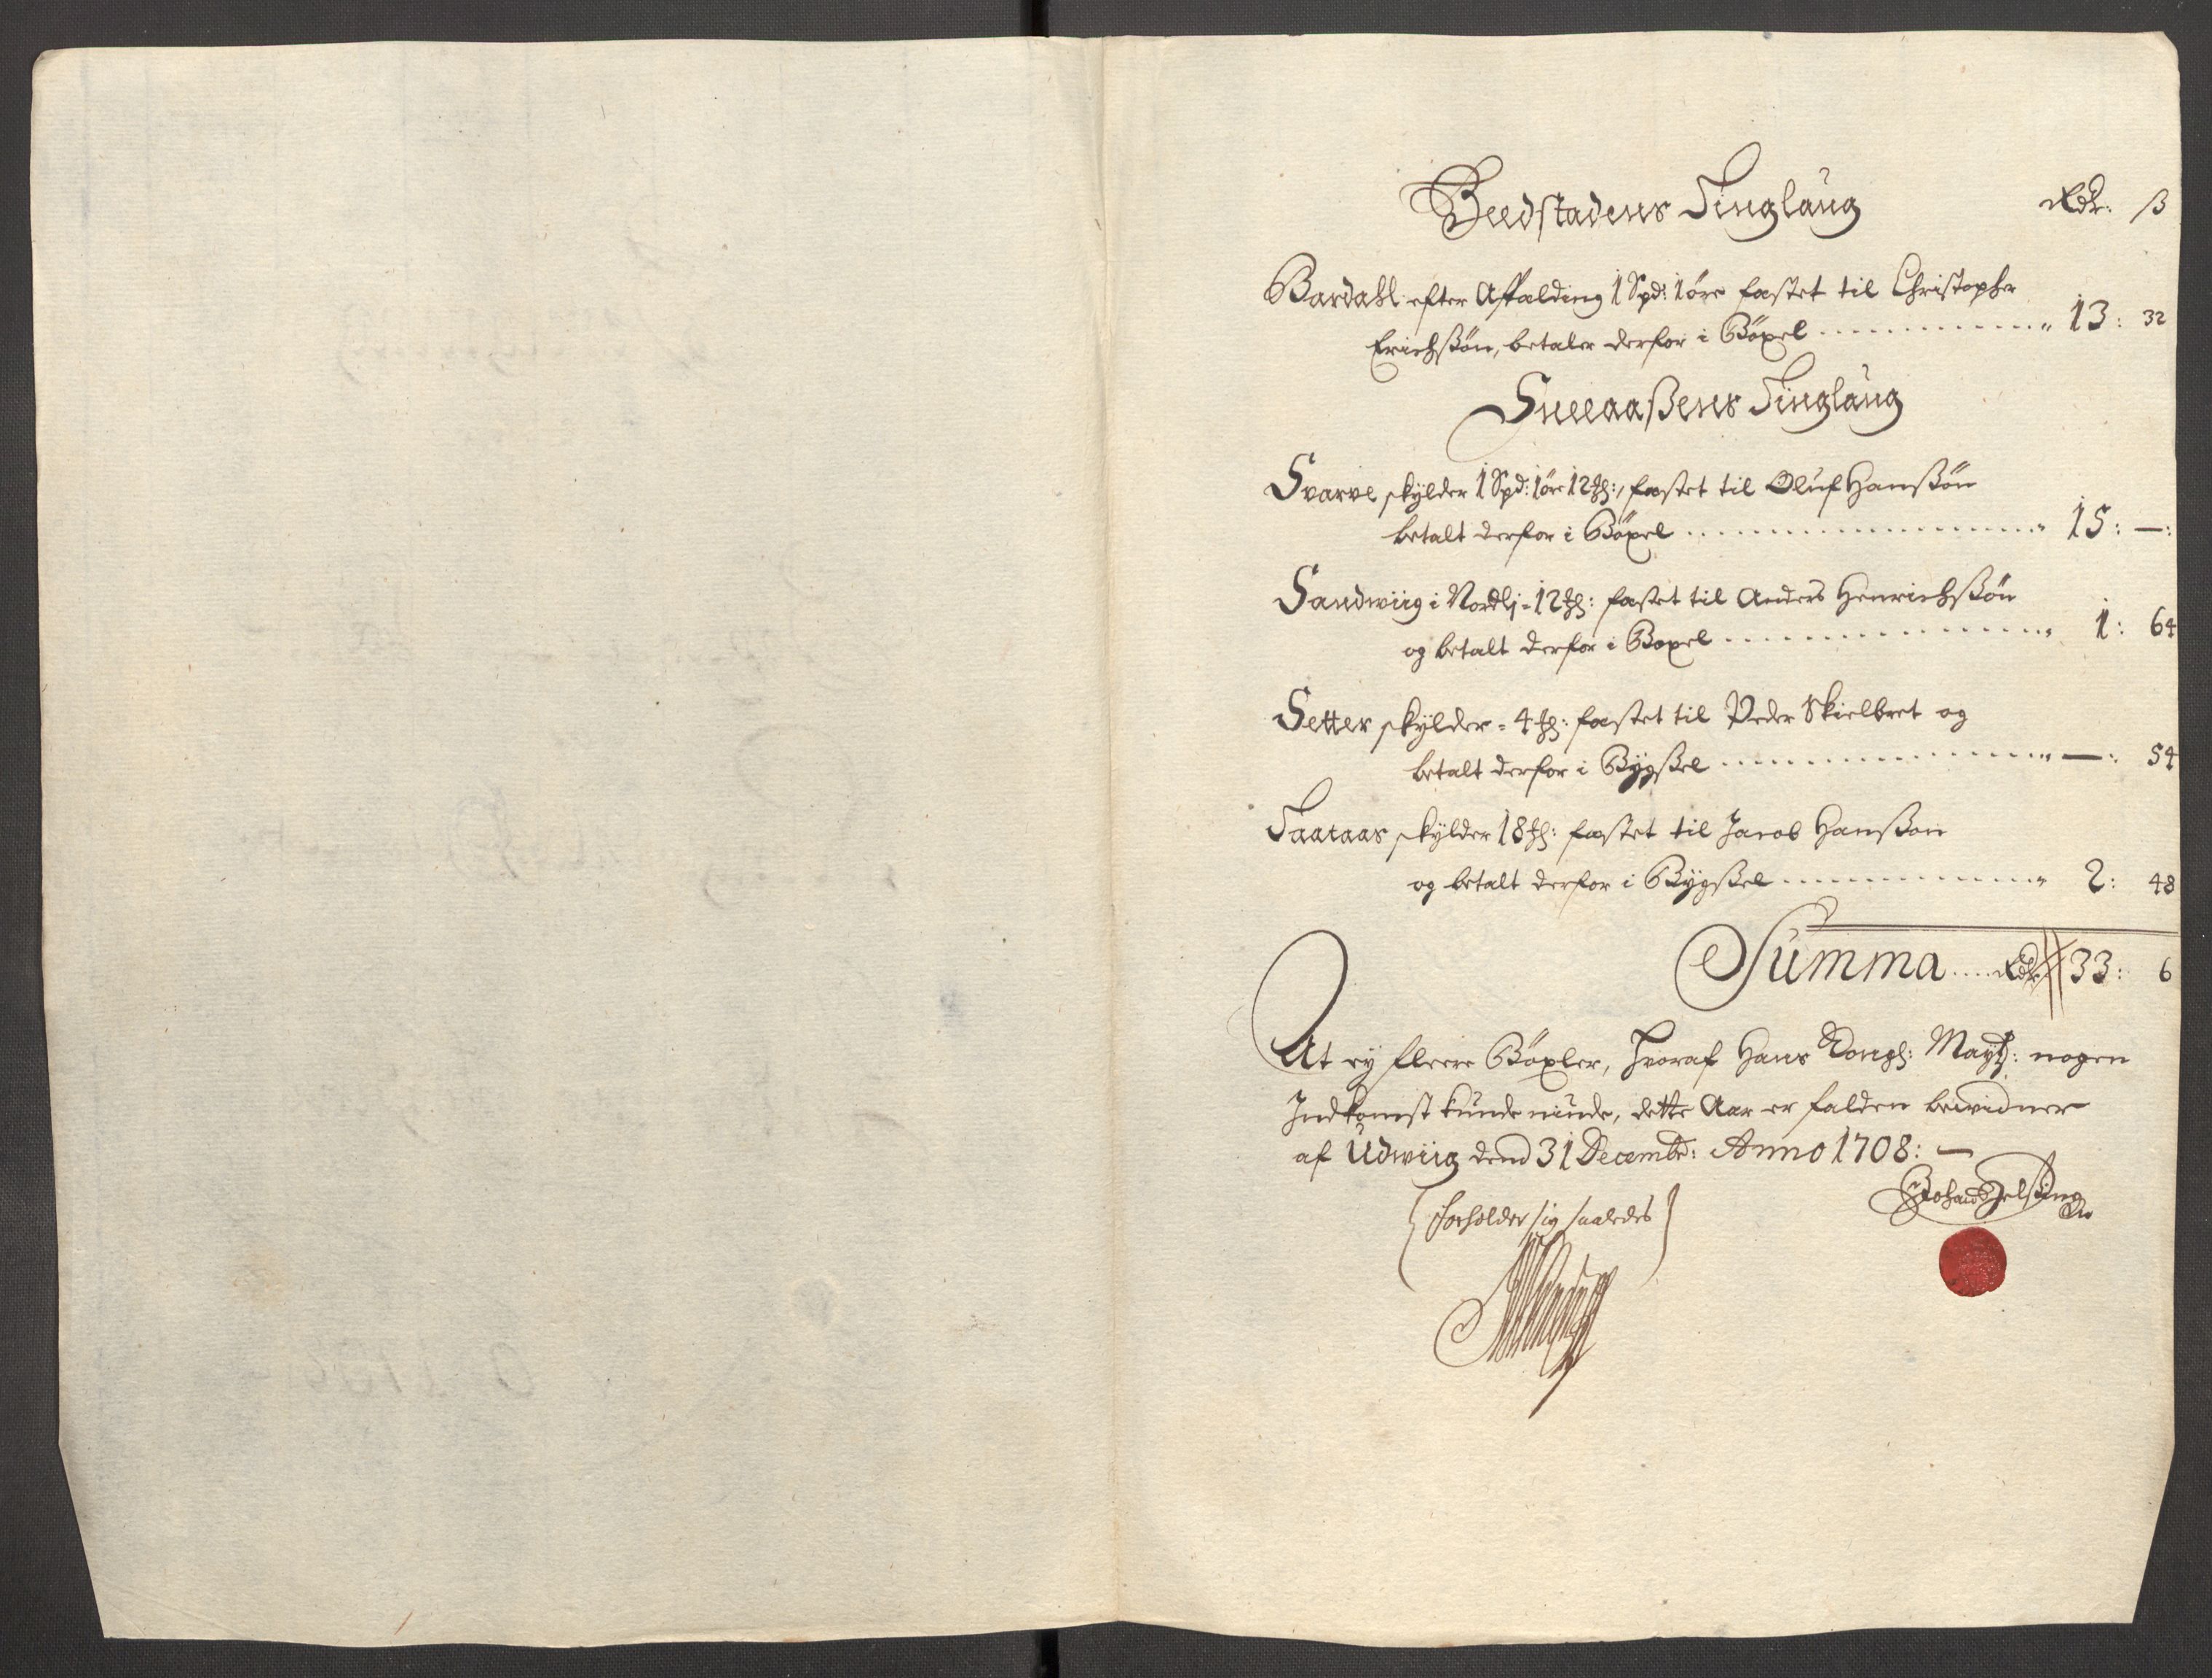 Beedstadens Tinglaug Rdr: ß
Bardahl efter Affalding 1 Spd: 1 øre fæstet til Christopher
Erichssøn, betaler derfor i Böxel 13: 32
Sneeaaßens Tinglaug
Svarve skylder 1 Spd: 1 øre 12 ₰:, fæstet til Oluf Hanssøn
betalt derfor i Böxel 15: —:
Sandwiig i Nordlj = 12 ₰: fæstet til Anders Henrichssøn
og betalt derfor i Boxel 1: 64
Setter skylder = 4 ₰: fæstet til Peder Skielbret og
betalt derfor i Bygssel —: 54
Taataas skylder 18 ₰: fæstet til Jacob Hansson
og betalt derfor i Bygssel 2: 48
Summa Rdr 33: 6
At ey fleere Böxler, hvoraf Hans Kongl: Mayt: nogen
Indkomst kunde niude, dette Aar er falden bewidner
af Udwiig dend 31 Decembr: Anno 1708: —
forholder sig saaledes